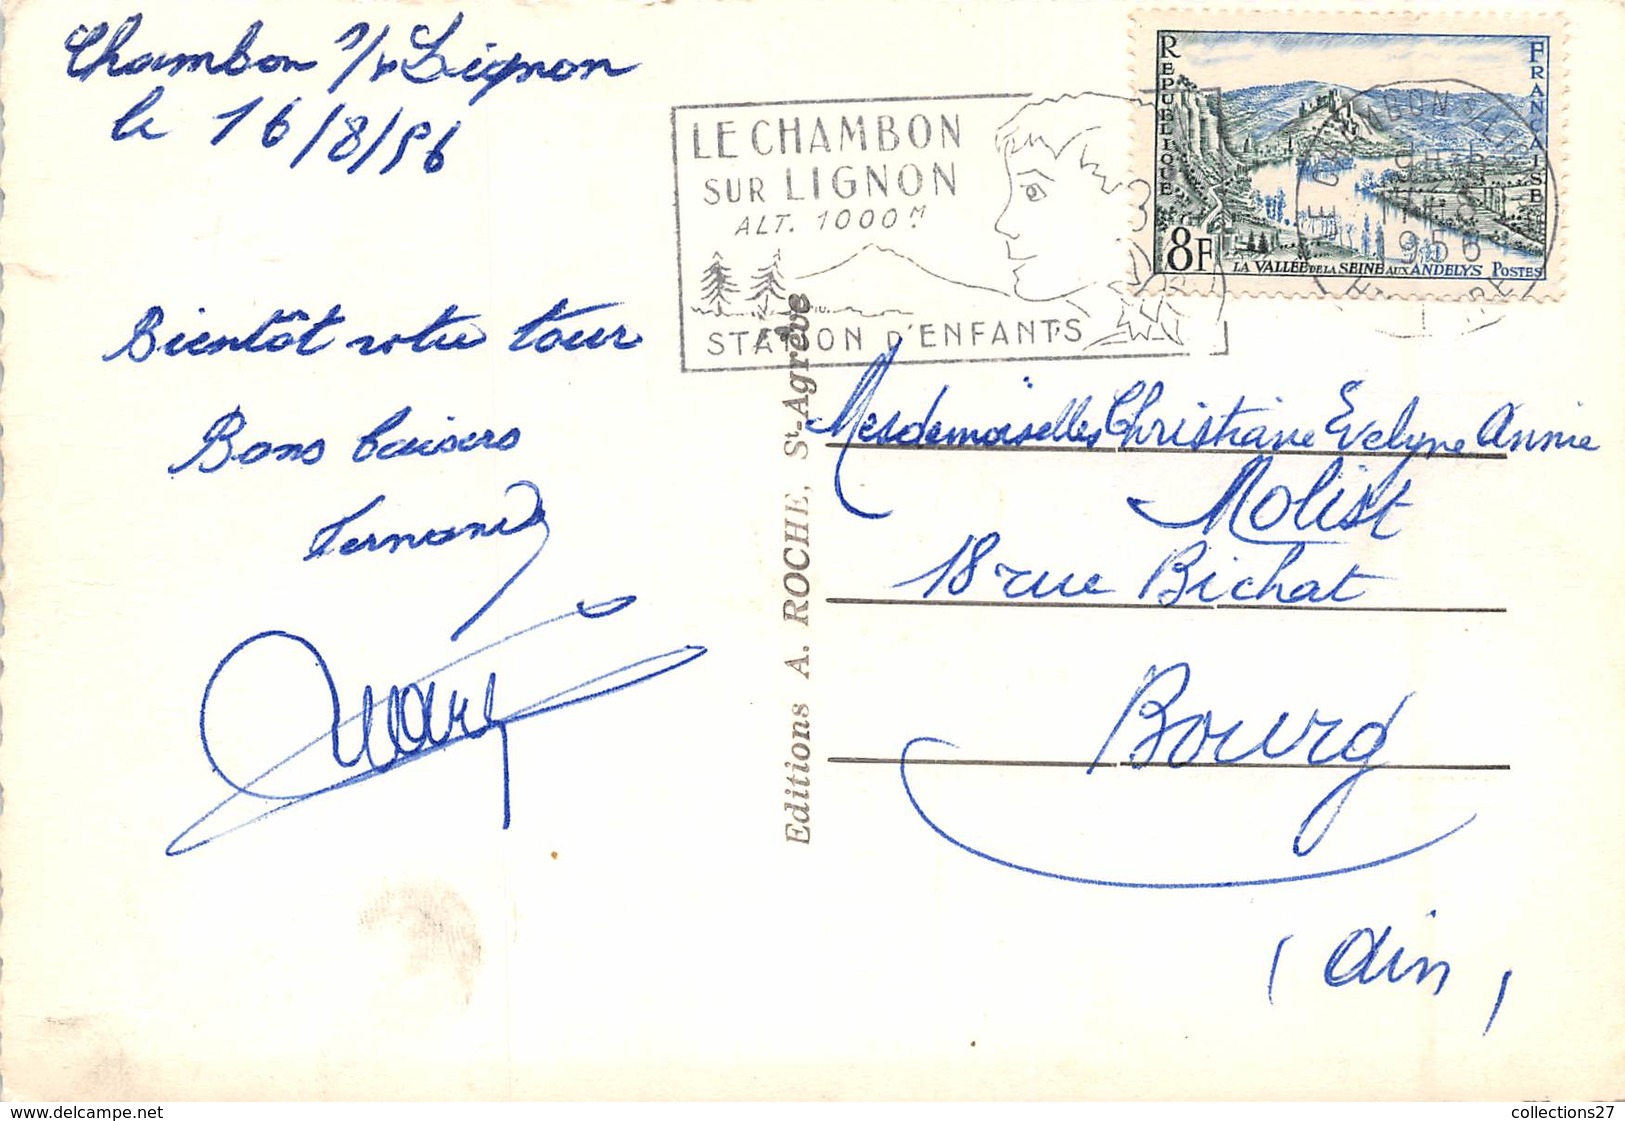 Chambon s/ Lignon
le 16/8/56
Bientôt votre tour
Bons baisers
Fernand
LE CHAMBON
SUR LIGNON
ALT. 1000 M
STATION D'ENFANTS
REPUBLIQUE FRANCAISE
8F
LA VALLÉE DE LA SEINE AUX ANDELYS POSTES
LE CHAMBON S/ LIGNON
1956
HTE LOIRE
Editions A. ROCHE, St-Agrève
Mesdemoiselles Christiane Evelyne Annie
Molist
18 rue Bichat
Bourg
(Ain)
collections27